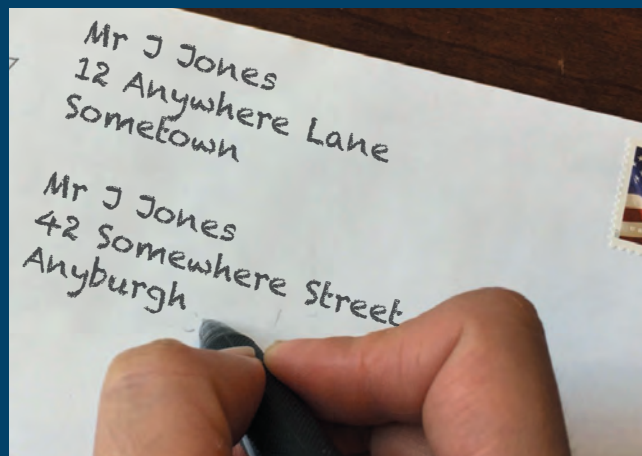 Mr J Jones
12 Anywhere Lane
Sometown
Mr J Jones
42 Somewhere Street
Anyburgh